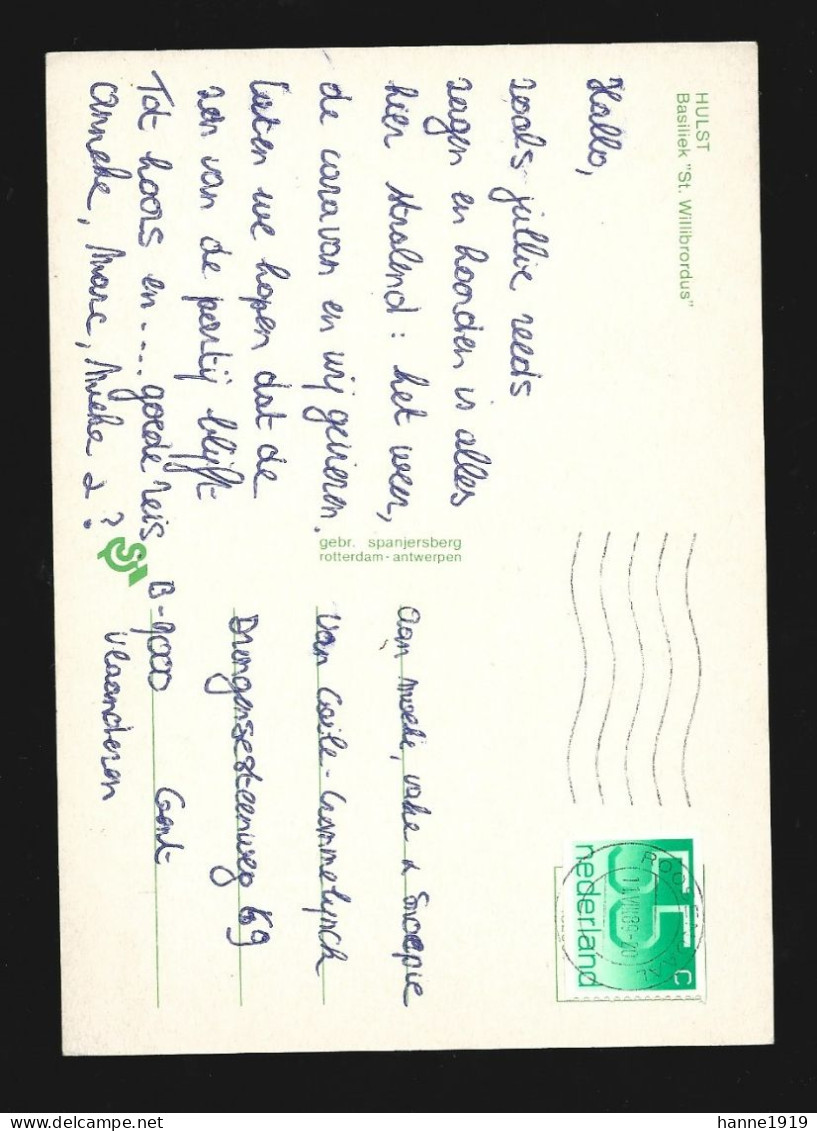 HULST
Basiliek "St. Willibrordus"
Hallo,
zoals jullie reeds
zagen en hoorden is alles
hier stralend : het weer,
de caravan en wij genieten.
Laten we hopen dat de
zon van de partij blijft
Tot hoors en .... goede reis
Anneke, Marc, Mieke & ?
gebr. spanjersberg
rotterdam - antwerpen
Aan moeke, vake & Snoepie
Van
Drongensesteenweg 69
B-9000 Gent
Vlaanderen
55 c
nederland
hanne1919